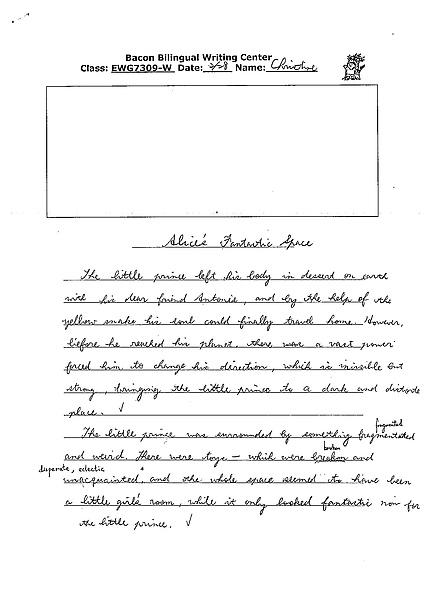 Bacon Bilingual Writing Center
Class: EWG7309-W Date: 3/28 Name: Christine
Alice's Fantastic Space
The little prince left his body in dessert on earth
with his dear friend Antonie, and by the help of the
yellow snake his soul could finally travel home. However,
before he reached his planet, there was a vast power
forced him to change his direction, which is invisible but
strong, bringing the little prince to a dark and
place. √
fragmented
The little prince was surrounded by something fragmentated
broken
and weird. There were toys — which were and
disparate, eclectic
unacquainted, and the whole space seemed to have been
a little girl's room, while it only looked fantastic now for
the little prince. √